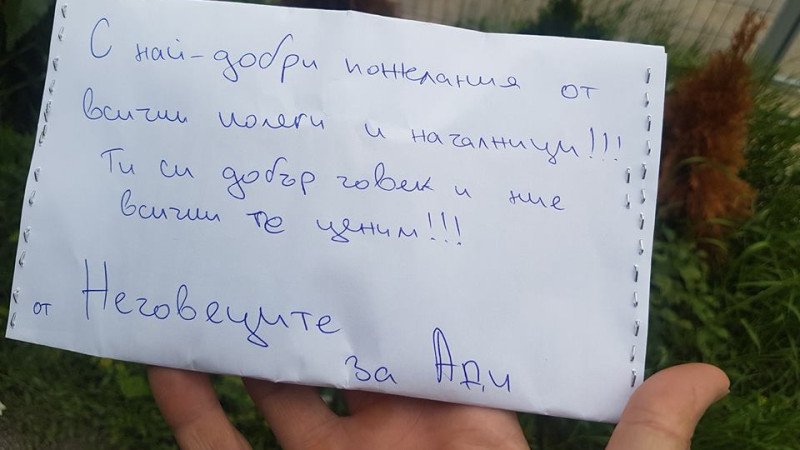 С най-добри пожелания от
всички колеги и началници!!!
Ти си добър човек и ние
всички те ценим!!!
от Неговеците
за Ади